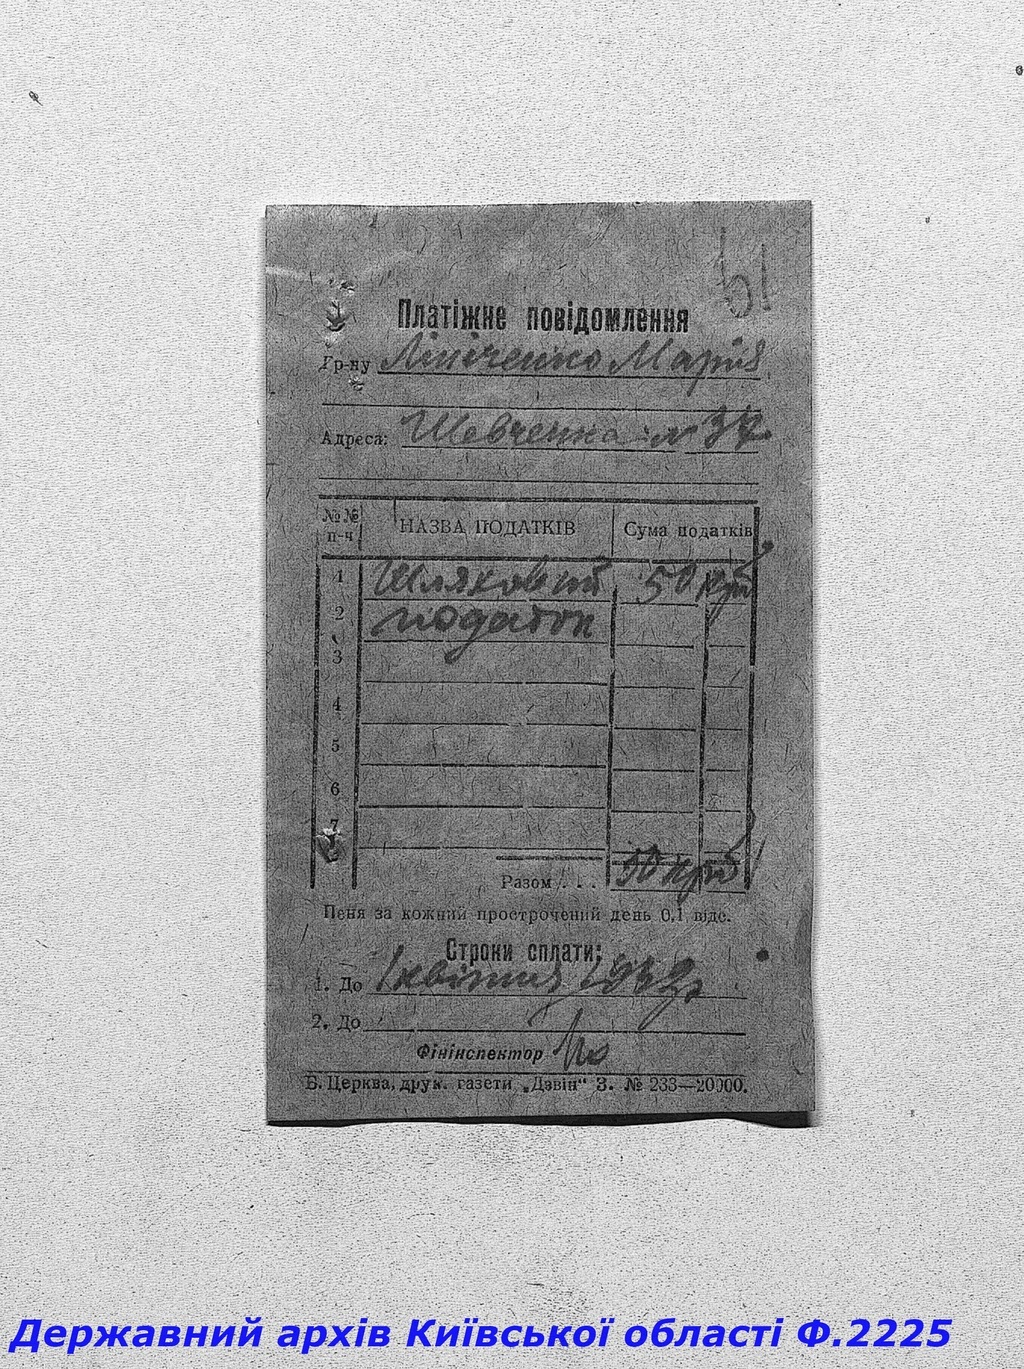 51
Платіжне повідомлення
Гр-ну Марія
Адреса: Шевченка № 37
№№ п-ч НАЗВА ПОДАТКІВ Сума податків
1 Шляховий 50 крб
2 податок
3
4
5
6
7
Разом . . . 50 крб
Пеня за кожний прострочений день 0,1 відс.
Строки сплати:
1. До 1 квітня 1942р
2. До
Фінінспектор
Б. Церква, друк. газети „Дзвін“ З. № 233—20000.
Державний архів Київської області Ф.2225